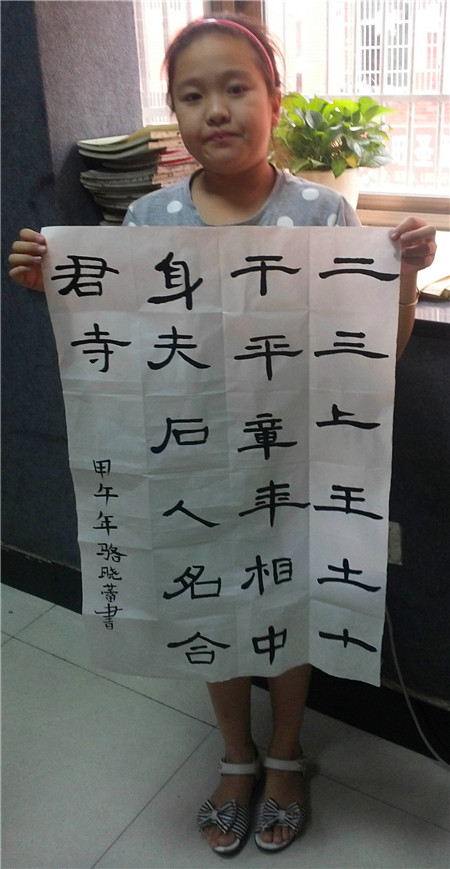 二三上王土十
干平章年相中
身夫石人名合
君寺
甲午年骆晓蕾書